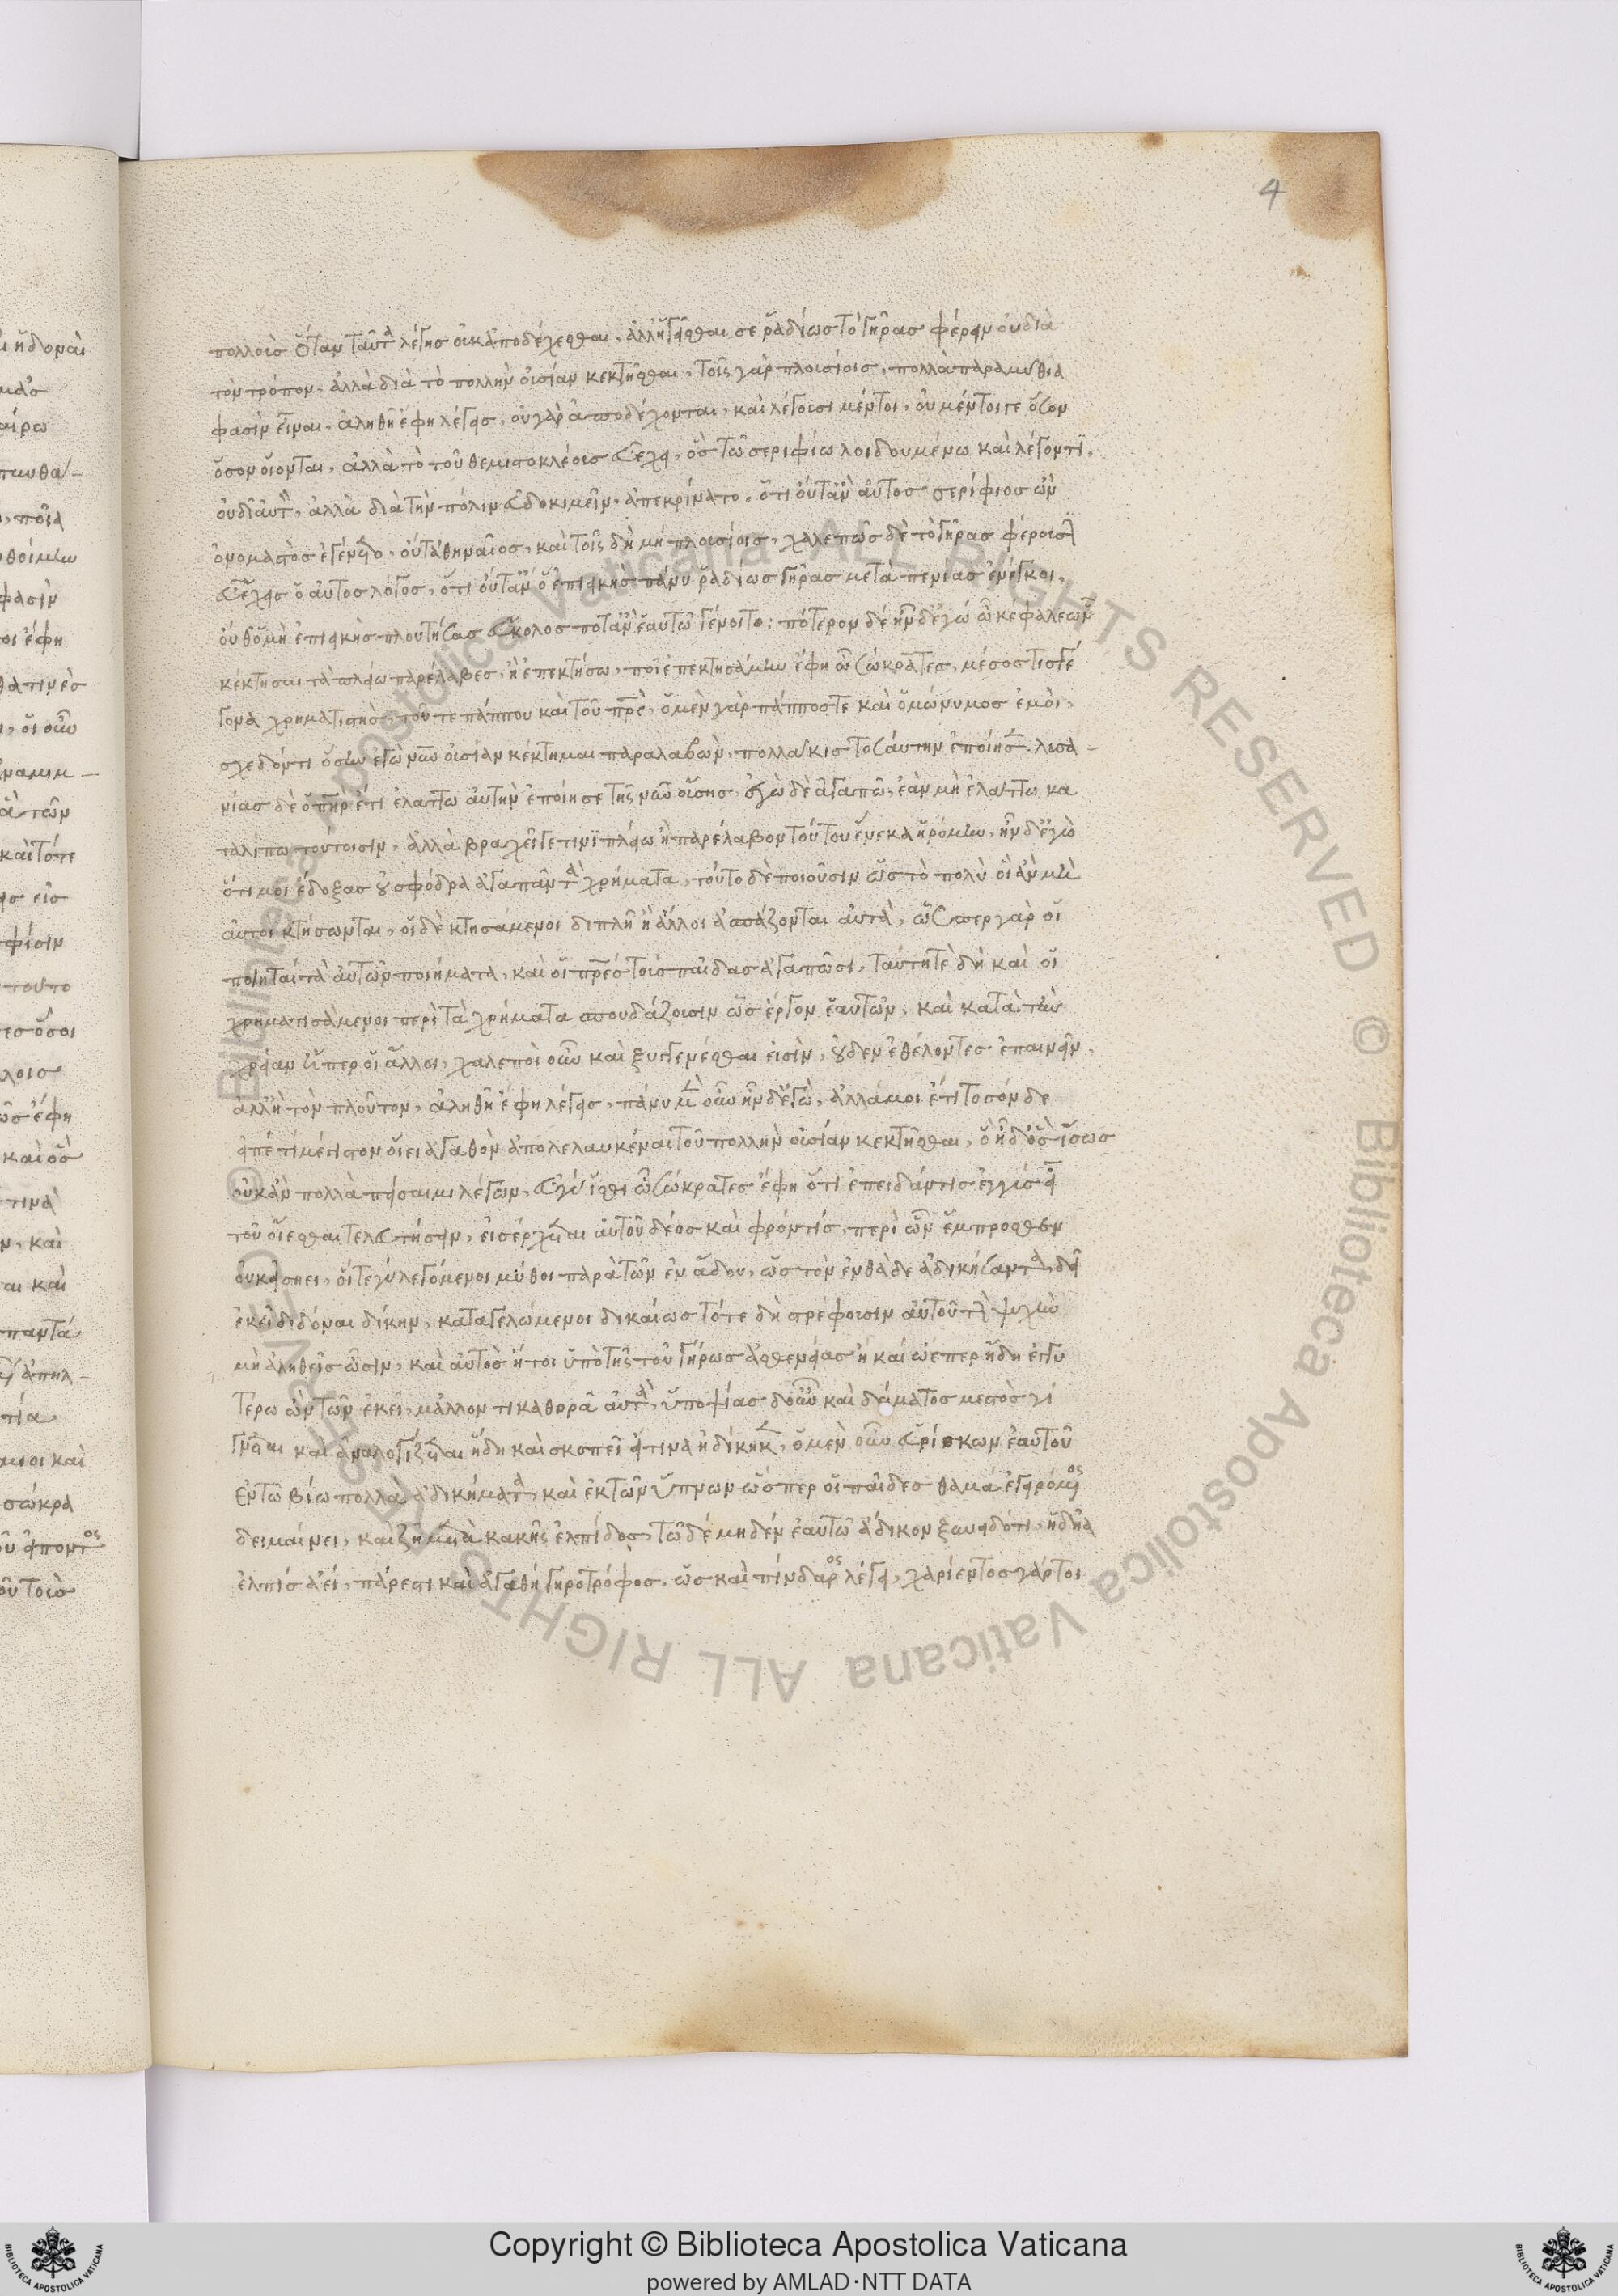 4
πολλοὺς ὅταν ταῦτα λέγης οὐκ ἀποδέχεσθαι, ἀλλ' ἡγεῖσθαι σε ῥαδίως τὸ γῆρας φέρειν οὐ διὰ
τὸν τρόπον, ἀλλὰ διὰ τὸ πολλὴν οὐσίαν κεκτῆσθαι, τοῖς γὰρ πλουσίοις, πολλὰ παραμύθια
φασὶν εἶναι, ἀληθῆ ἔφη λέγεις, οὐ γὰρ ἀποδέχονται, καὶ λέγουσι μέντοι, οὐ μέντοι γε ὅσον
ὅσον οἴονται, ἀλλὰ τὸ τοῦ θεμιστοκλέους εὖ ἔχει, ὃς τῶ σεριφίω λοιδουμένω καὶ λέγοντι,
οὐ δι' αὐτὸν, ἀλλὰ διὰ τὴν πόλιν εὐδοκιμεῖν, ἀπεκρίνατο, ὅτι οὔτ' ἂν αὐτὸς σερίφιος ὢν
ὀνομαστὸς ἐγένετο, οὔτ' ἀθηναῖος, καὶ τοῖς δὴ μὴ πλουσίοις, χαλεπῶς δὲ τὸ γῆρας φέρουσιν
εὖ ἔχει ὁ αὐτὸς λόγος, ὅτι οὔτ' ἂν ὁ ἐπιεικὴς πάνυ ῥαδίως γῆρας μετὰ πενίας ἐνέγκοι,
οὔθ' ὁ μὴ ἐπιεικὴς πλουτήσας εὔκολος ποτ' ἂν ἑαυτῶ γένοιτο: πότερον δέ ἦν δ' ἐγώ ὦ κεφαλε ὧν
κέκτησαι τὰ πλείω παρέλαβες, ἢ ἐπεκτήσω, ποῖ ἐπεκτησάμην ἔφη ὦ σώκρατες, μέσος τις γέ
γονα χρηματιστὴς, τοῦ τε πάππου καὶ τοῦ πρς, ὁ μὲν γὰρ πάππος τε καὶ ὁμώνυμος ἐμοὶ,
σχεδόν τι ὅσην ἐγὼ νῦν οὐσίαν κέκτημαι παραλαβὼν, πολλάκις τοσαύτην ἐποίησεν. λυσα-
νίας δὲ ὁ πηρ ἔτι ἐλάττω αὐτὴν ἐποίησε τῆς νῦν οὔσης, ἐγὼ δὲ ἀγαπῶ, ἐὰν μὴ ἐλάττω κα
ταλίπω τούτοισιν, ἀλλὰ βραχεῖ γε τινὶ πλείω ἢ παρέλαβον τούτου ἕνεκα ἠρόμην, ἦν δ' ἐγὼ
ὅτι μοι ἔδοξας οὐ σφόδρα ἀγαπᾶν τὰ χρήματα, τοῦτο δὲ ποιοῦσιν ὡς τὸ πολὺ οἳ ἂν μὴ
αὐτοὶ κτήσωνται, οἱ δὲ κτησάμενοι διπλῆ ἢ ἄλλοι ἀσπάζονται αὐτὰ, ὥσπερ γὰρ οἱ
ποιηταὶ τὰ αὑτῶν ποιήματα, καὶ οἱ πρες τοὺς παῖδας ἀγαπῶσι, ταύτη τε δὴ καὶ οἱ
χρηματισάμενοι περὶ τὰ χρήματα σπουδάζουσιν ὡς ἔργον ἑαυτῶν, καὶ κατὰ τὴν
χρείαν ἧπερ οἱ ἄλλοι, χαλεποὶ οὖν καὶ ξυγγενέσθαι εἰσὶν, οὐδεν ἐθέλοντες ἐπαινεῖν,
ἀλλ' ἢ τὸν πλοῦτον, ἀληθῆ ἔφη λέγεις, πάνυ μὲν οὖν ἦν δ' ἐγὼ, ἀλλά μοι ἔτι τοσόν δε
εἰπέ τί μέγιστον οἴει ἀγαθὸν ἀπολελαυκέναι τοῦ πολλὴν οὐσίαν κεκτῆσθαι, ὃ ἦ δ' ὃς ἴσως
οὐκ ἂν πολλὰ πείσαιμι λέγων, εὖ γὰρ ἴσθι ὦ σώκρατες ἔφη ὅτι ἐπειδάν τις ἐγγὺς ᾖ
τοῦ οἴεσθαι τελευτήσειν, εἰσέρχεται αὐτοῦ δέος καὶ φροντίς, περὶ ὧν ἔμπροσθεν
οὐκ εἰσηει, οἵ τε γὰρ λεγόμενοι μῦθοι παρὰ τῶν ἐν ἅδου, ὡς τὸν ἐνθάδε ἀδικήσαντα δεῖ
ἐκεῖ διδόναι δίκην, καταγελώμενοι δικαίως τότε δὴ στρέφουσιν αὐτοῦ τὴν ψυχὴν
μὴ ἀληθεῖς ὦσιν, καὶ αὐτὸς ἤτοι ὑπὸ τῆς τοῦ γήρως ἀσθενείας ἢ καὶ ὥσπερ ἤδη ἐγγυ
τέρω ὢν τῶν ἐκεῖ, μᾶλλον τι καθορᾶ αὐτὰ, ὑποψίας δ' οὖν καὶ δείματος μεστὸς γί
γνεται καὶ ἀναλογίζεται ἤδη καὶ σκοπεῖ εἴ τινα ἠδίκηκεν, ὁ μὲν οὖν εὑρίσκων ἑαυτοῦ
ἐν τῶ βίω πολλὰ ἀδικήματα, καὶ ἐκ τῶν ὕπνων ὥσπερ οἱ παῖδες θαμά ἐγειρόμενος
δειμαίνει, καὶ ζῆ μετὰ κακῆς ἐλπίδος, τῶ δέ μηδέν ἑαυτῶ ἄδικον ξυνειδότι, ἡδεῖα
ἐλπίς ἀεί, πάρεστι καὶ ἀγαθή γηροτρόφος, ὡς καὶ πίνδαρος λέγει, χαρίεντος γάρ τοι
Copyright © Biblioteca Apostolica Vaticana
powered by AMLAD·NTT DATA